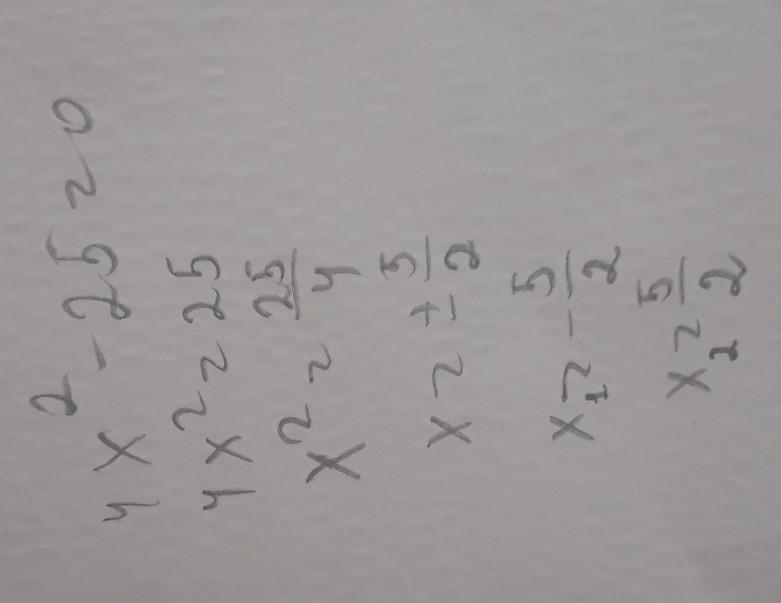 4x² - 25 = 0
4x² = 25
x² = 25/4
x = ± 5/2
x₁ = - 5/2
x₂ = 5/2